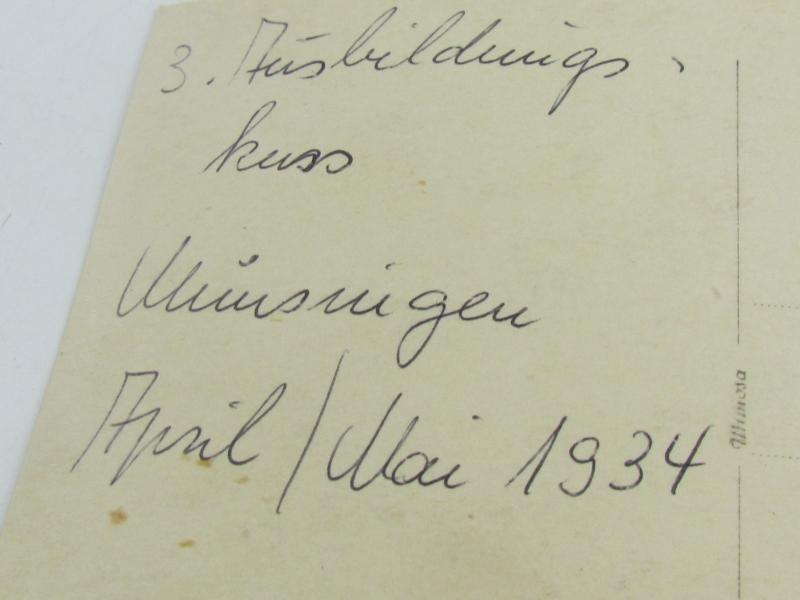 3. Ausbildungs-
kurs
Münsingen
April/Mai 1934
Mimosa